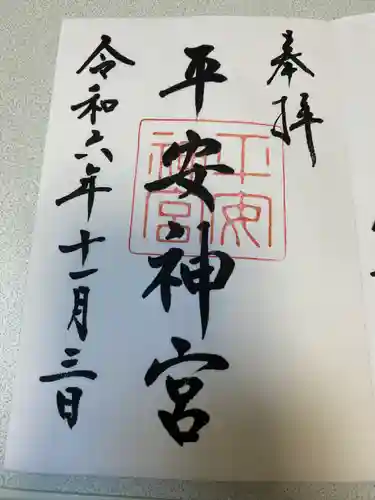 奉拝
平安神宮
平安
神宮
令和六年十一月三日